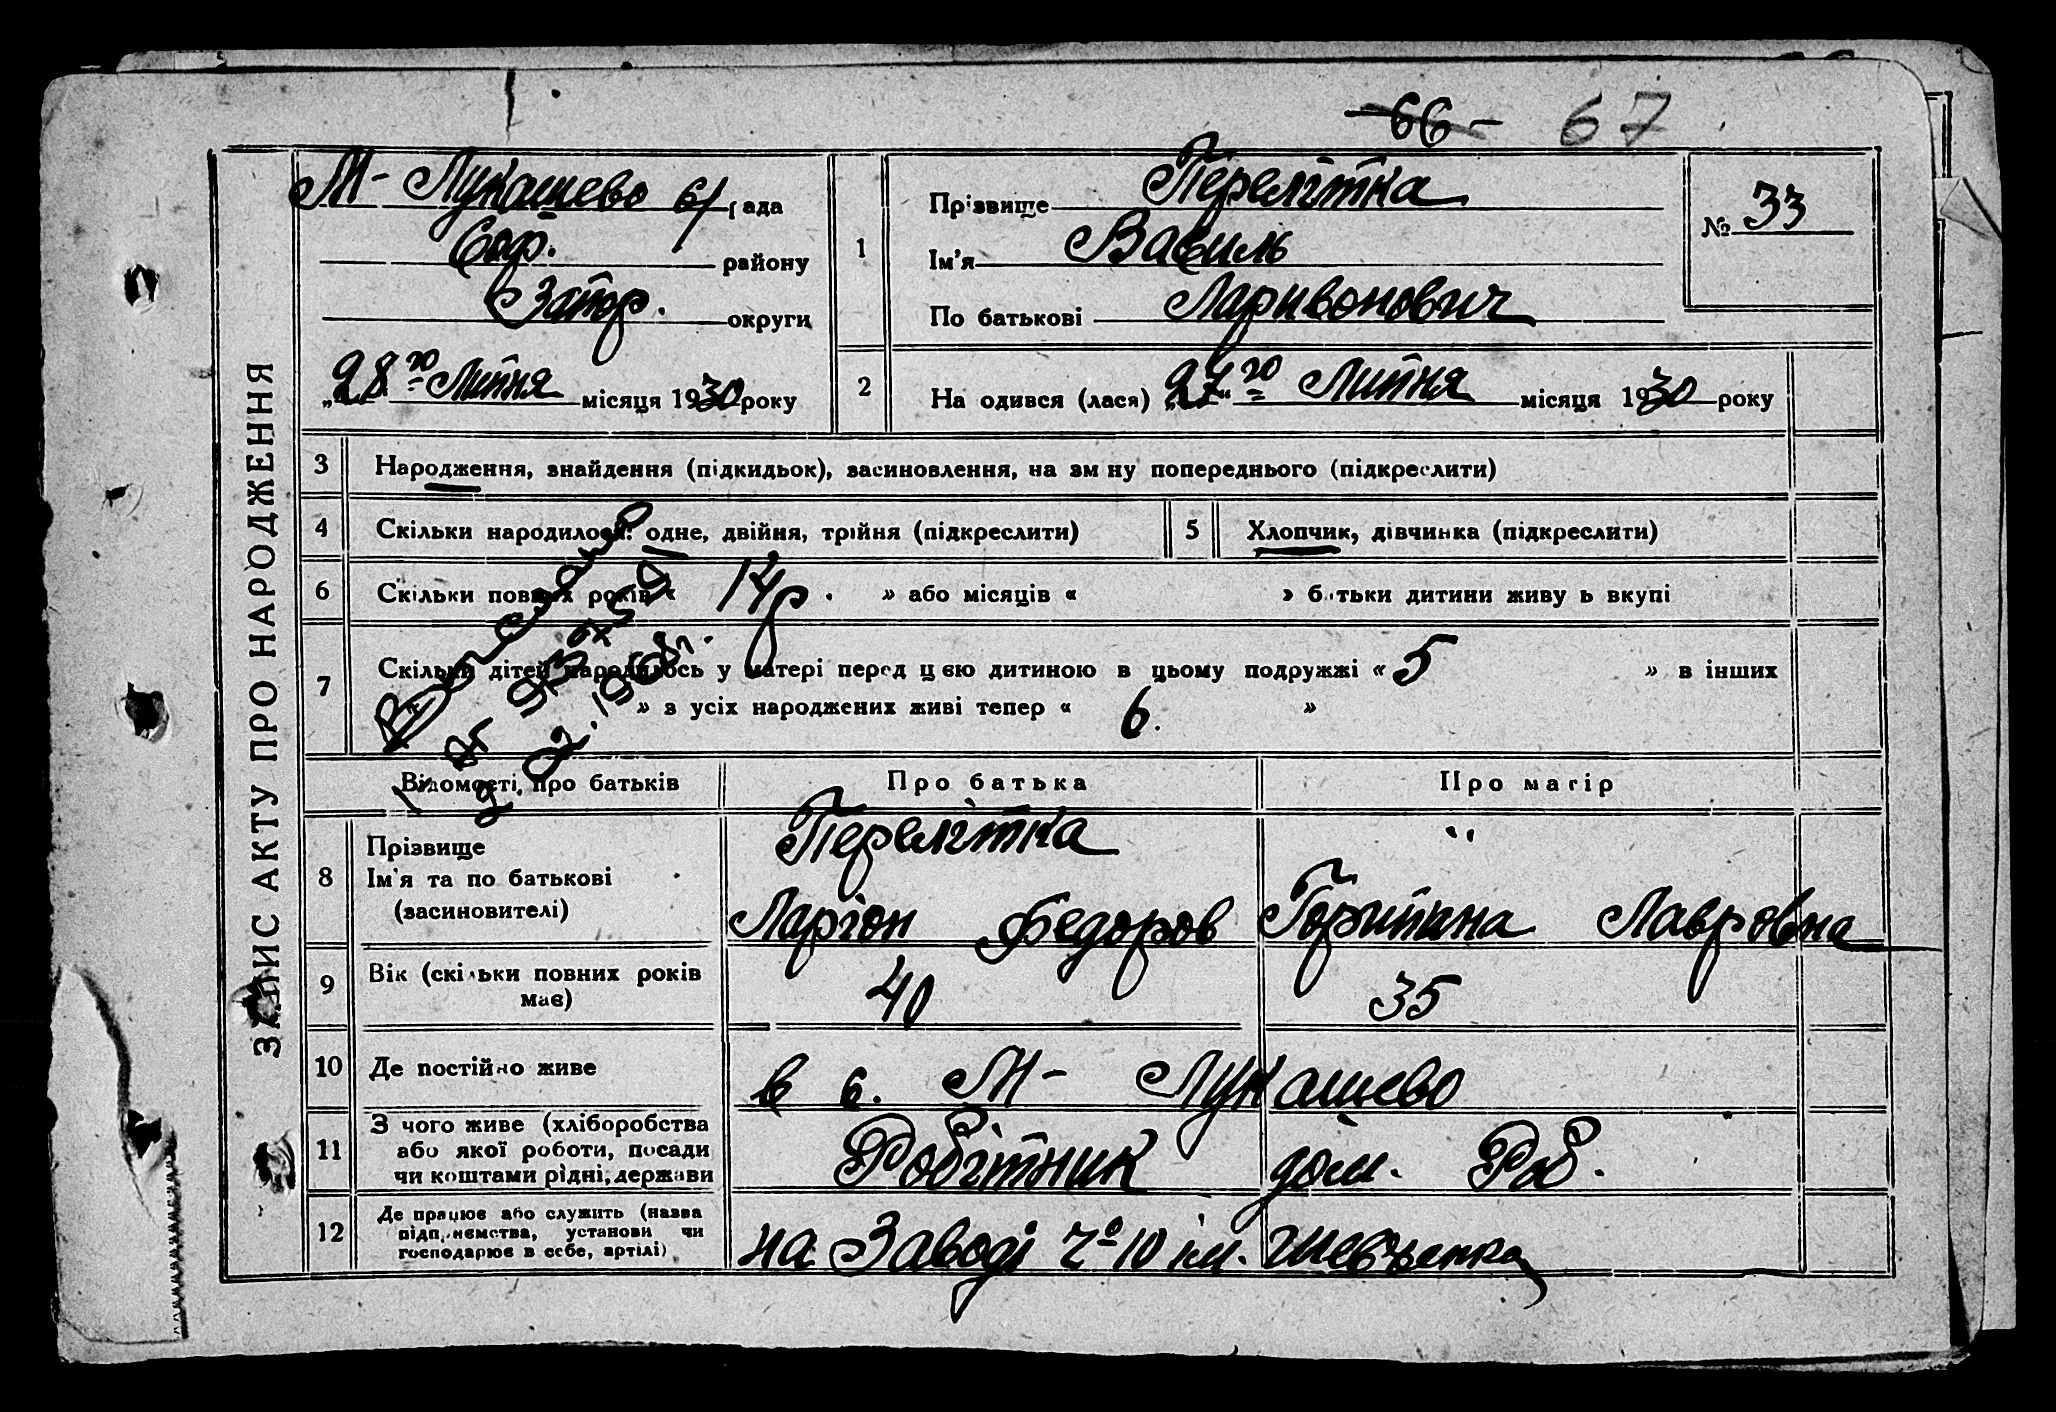 66 - 67
М- Лукашево с/рада
Соф. району
Запор. округи
„28го" Липня місяця 1930 року
1
Прізвище Перелітка
Ім'я Василь
По батькові Ларивонович
№ 33
2
На одився (лася) „27го" Липня місяця 1930 року
ЗАПИС АКТУ ПРО НАРОДЖЕННЯ
3 Народження, знайдення (підкидьок), засиновлення, на зм ну попереднього (підкреслити)
4 Скільки народилося: одне, двійня, трійня (підкреслити)
5 Хлопчик, дівчинка (підкреслити)
6 Скільки повних років « 14р. » або місяців « » батьки дитини живу ь вкупі
7 Скільки дітей народилось у матері перед цєю дитиною в цьому подружжі « 5 » в інших
» з усіх народжених живі тепер « 6. »
Відомості про батьків Про батька Про матір
8 Прізвище
Ім'я та по батькові
(засиновителі)
Перелітка "
Ларіон Федоров Горпина Лавровна
9 Вік (скільки повних років
має)
40 35
10 Де постійно живе
в с. М- Лукашево
11 З чого живе (хліборобства
або якої роботи, посади
чи коштами рідні, держави
Робітник дом. Роб.
12 Де працює або служить (назва
підприємства, установи чи
господарює в себе, артілі)
на Заводі 10 ім. Шевченка